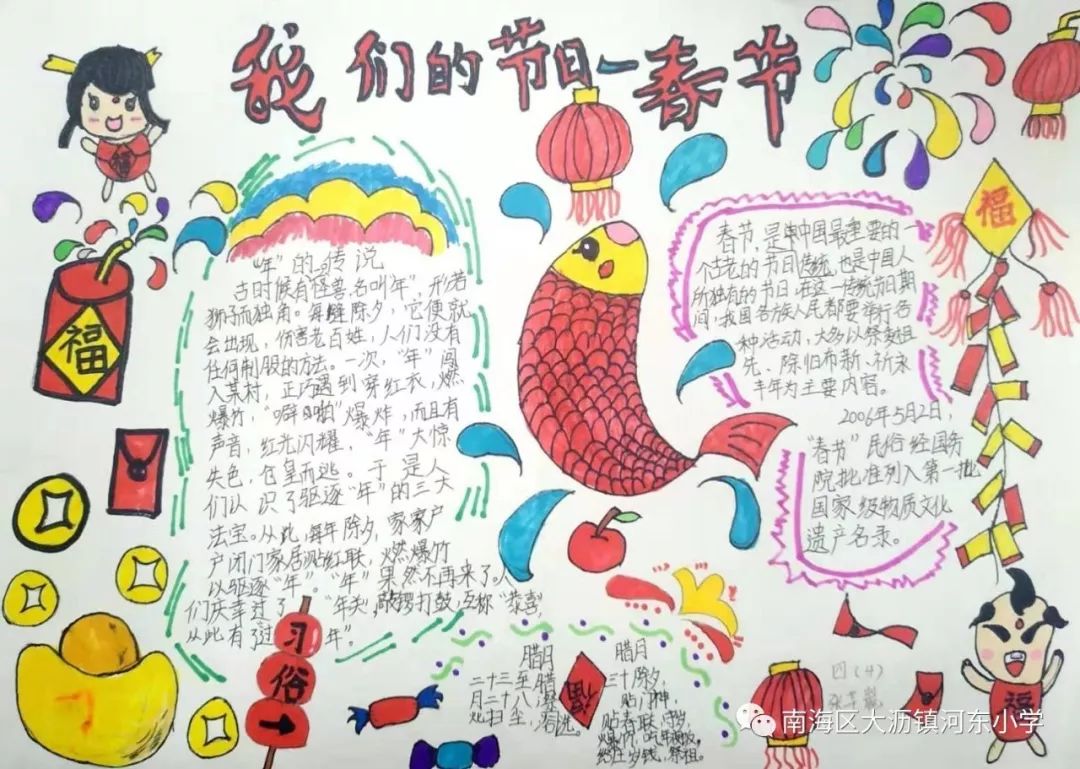 我们的节日—春节
福
福
"年"的传说
古时候有怪兽名叫"年",形若
狮子而独角。每逢除夕,它便就
会出现,伤害老百姓,人们没有
任何制服的方法。一次,"年"闯
入某村,正巧遇到穿红衣,燃
爆竹,"噼日啪"爆炸,而且有
声音,红光闪耀,"年"大惊
失色,仓皇而逃。于是人
们认识了驱逐"年"的三大
法宝。从此,每年除夕,家家户
户闭门家居,贴红联,燃爆竹
以驱逐"年"。"年"果然不再来了。人
们庆幸过了"年关,敲锣打鼓,互称"恭喜
从此有了过年"。
春节,是中国最重要的一
个古老的节日传统,也是中国人
所独有的节日,在这一传统节日期
间,我国各族人民都要举行各
种活动,大多以祭奠祖
先、除旧布新、祈求
丰年为主要内容。
2006年5月2日,
"春节"民俗经国务
院批准列入第一批
国家级物质文化
遗产名录。
福
习
俗
腊月
二十三至腊
月二十八
扫尘,洗。
福
腊月
三十除夕,
贴门神,
贴春联,守岁,
爆竹,吃年夜饭。
给压岁钱,祭祖。
四(4)
福
南海区大沥镇河东小学